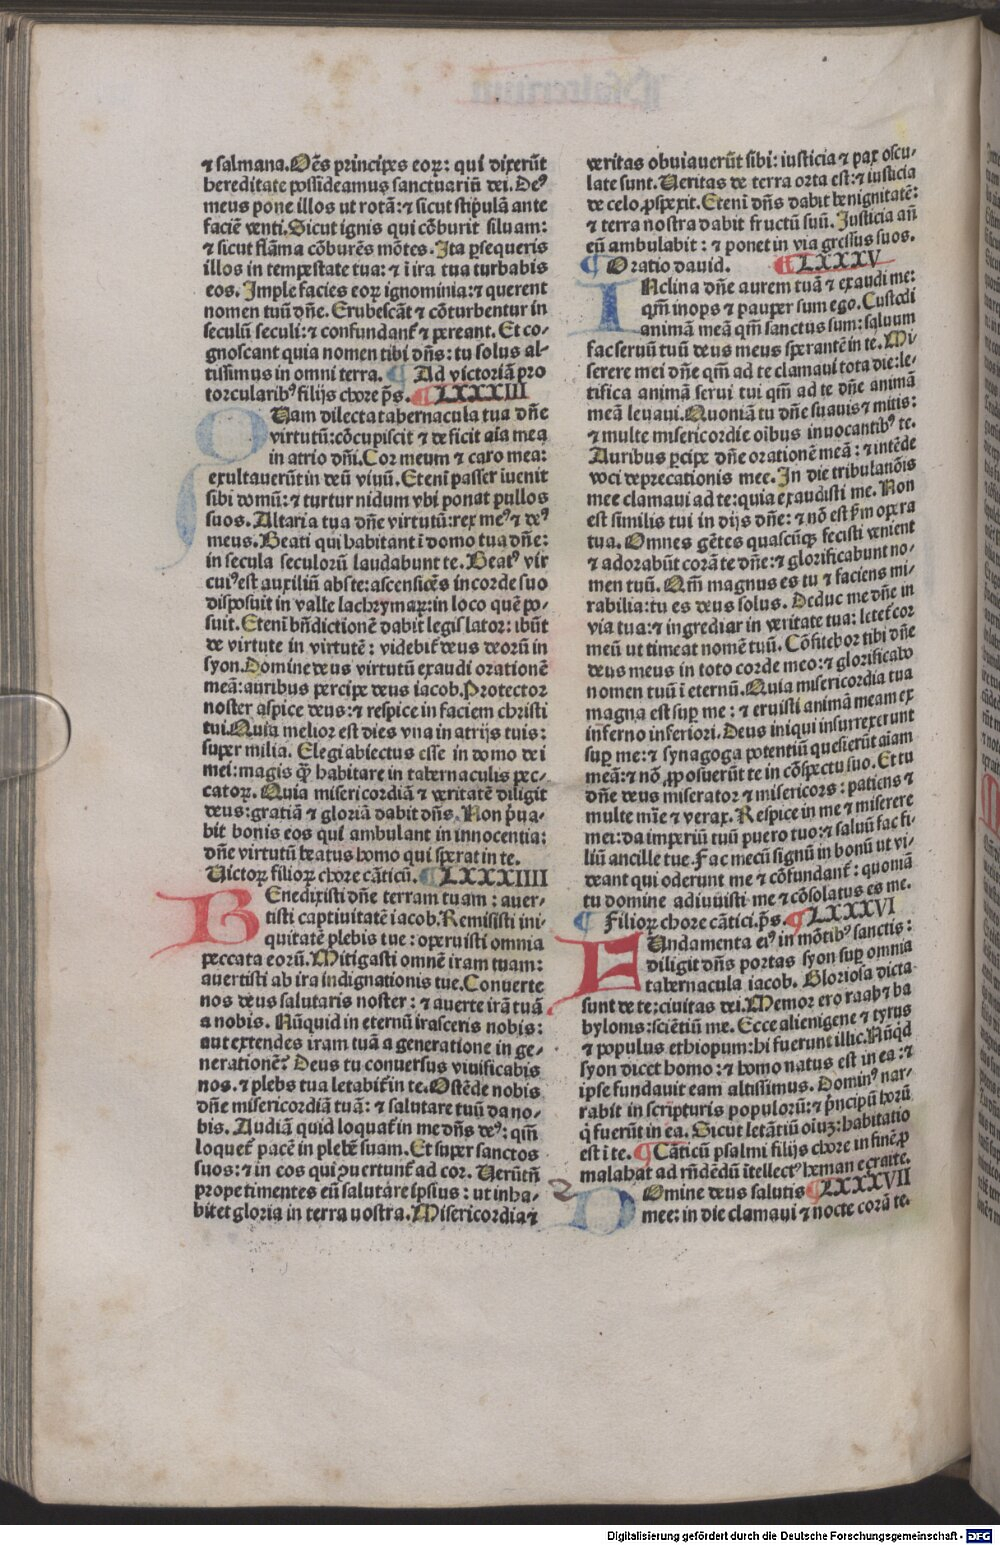 ⁊ salmana. Oēs principes eoꝝ: qui dixerūt
hereditate possideamus sanctuariū dei. Deꝰ
meus pone illos ut rotā: ⁊ sicut stipulā ante
faciē venti. Sicut ignis qui cōburit siluam:
⁊ sicut flāma cōburēs mōtes. Ita ꝑsequeris
illos in tempestate tua: ⁊ ī ira tua turbabis
eos. Imple facies eoꝝ ignominia: ⁊ querent
nomen tuū dñe. Erubescāt ⁊ cōturbentur in
seculū seculi: ⁊ confundant̄ ⁊ pereant. Et co-
gnoscant quia nomen tibi dñs: tu solus al-
tissimus in omni terra. ¶ Ad victoriā pro
torcularibꝰ filijs chore p̄s. ¶ LXXXIII
Quam dilecta tabernacula tua dñe
virtutū: cōcupiscit ⁊ deficit aīa mea
in atrio dñi. Cor meum ⁊ caro mea:
exultauerūt in deū viuū. Etenī passer iuenit
sibi domū: ⁊ turtur nidum vbi ponat pullos
suos. Altaria tua dñe virtutū: rex meꝰ ⁊ deꝰ
meus. Beati qui habitant ī domo tua dñe:
in secula seculorū laudabunt te. Beatꝰ vir
cuiꝰ est auxiliū abste: ascensiōes in corde suo
disposuit in valle lachrymaꝝ: in loco quē po-
suit. Etenī bñdictionē dabit legis lator: ibūt
de virtute in virtutē: videbit̄ deus deorū in
syon. Domine deus virtutū exaudi orationē
meā: auribus percipe deus iacob. Protector
noster aspice deus: ⁊ respice in faciem christi
tui. Quia melior est dies vna in atrijs tuis:
super milia. Elegi abiectus esse in domo dei
mei: magis q̄ꝫ habitare in tabernaculis pec-
catoꝝ. Quia misericordiā ⁊ veritatē diligit
deus: gratiā ⁊ gloriā dabit dñs. Non p̄ua-
bit bonis eos qui ambulant in innocentia:
dñe virtutū beatus homo qui sperat in te.
Victoꝝ filioꝝ chore cāticū. ¶ LXXXIIII
Benedixisti dñe terram tuam: auer-
tisti captiuitatē iacob. Remisisti ini-
quitatē plebis tue: operuisti omnia
peccata eorū. Mitigasti omnē iram tuam:
auertisti ab ira indignationis tue. Conuerte
nos deus salutaris noster: ⁊ auerte irā tuā
a nobis. Nūquid in eternū irasceris nobis:
aut extendes iram tuā a generatione in ge-
nerationē? Deus tu conuersus viuificabis
nos. ⁊ plebs tua letabit̄ in te. Ostēde nobis
dñe misericordiā tuā: ⁊ salutare tuū da no-
bis. Audiā quid loquat̄ in me dñs deꝰ: qm̄
loquet̄ pacē in plebē suam. Et super sanctos
suos: ⁊ in eos qui ꝯuertunt̄ ad cor. Verūtñ
prope timentes eū salutare ipsius: ut inha-
bitet gloria in terra nostra. Misericordia ⁊
veritas obuiauerūt sibi: iusticia ⁊ pax oscu-
late sunt. Veritas de terra orta est: ⁊ iusticia
de celo ꝓspexit. Etenī dñs dabit benignitatē:
⁊ terra nostra dabit fructū suū. Justicia añ
eū ambulabit: ⁊ ponet in via gressus suos.
¶ Oratio dauid. ¶ LXXXV
INclina dñe aurem tuā ⁊ exaudi me:
qm̄ inops ⁊ pauper sum ego. Custodi
animā meā qm̄ sanctus sum: saluum
fac seruū tuū deus meus sperantē in te. Mi-
serere mei dñe qm̄ ad te clamaui tota die: le-
tifica animā serui tui qm̄ ad te dñe animā
meā leuaui. Quoniā tu dñe suauis ⁊ mitis:
⁊ multe misericordie oībus inuocantibꝰ te.
Auribus ꝑcipe dñe orationē meā: ⁊ intēde
voci deprecationis mee. In die tribulatiōis
mee clamaui ad te: quia exaudisti me. Non
est similis tui in dijs dñe: ⁊ nō est ẜm opera
tua. Omnes gētes quascūqꝫ fecisti venient
⁊ adorabūt corā te dñe: ⁊ glorificabunt no-
men tuū. Qm̄ magnus es tu ⁊ faciens mi-
rabilia: tu es deus solus. Deduc me dñe in
via tua: ⁊ ingrediar in veritate tua: letet̄ cor
meū ut timeat nomē tuū. Cōfitebor tibi dñe
deus meus in toto corde meo: ⁊ glorificabo
nomen tuū ī eternū. Quia misericordia tua
magna est suꝑ me: ⁊ eruisti animā meam ex
inferno inferiori. Deus iniqui insurrexerunt
suꝑ me: ⁊ synagoga potentiū quesierūt aīam
meā: ⁊ nō ꝓposuerūt te in cōspectu suo. Et tu
dñe deus miserator ⁊ misericors: patiens ⁊
multe mīe ⁊ verax. Respice in me ⁊ miserere
mei: da imperiū tuū puero tuo: ⁊ saluū fac fi-
liū ancille tue. Fac mecū signū in bonū ut vi-
deant qui oderunt me ⁊ cōfundant̄: quoniā
tu domine adiuuisti me ⁊ cōsolatus es me.
¶ Filioꝝ chore cātici. p̄s. ¶ LXXXVI
FUndamenta eiꝰ in mōtibꝰ sanctis:
diligit dñs portas syon suꝑ omnia
tabernacula iacob. Gloriosa dicta
sunt de te: ciuitas dei. Memor ero raab ⁊ ba
bylonis: sciētiū me. Ecce alienigene ⁊ tyrus
⁊ populus ethiopum: hi fuerunt illic. Nūq̄d
syon dicet homo: ⁊ homo natus est in ea: ⁊
ipse fundauit eam altissimus. Dominꝰ nar-
rabit in scripturis populorū: ⁊ p̄ncipū horū
q̄ fuerūt in ea. Sicut letātiū oīuꝫ: habitatio
est ī te. ¶ Cāticū psalmi filijs chore in finē ꝓ
malahat ad rñdēdū ītellectꝰ heman ezraite.
Domine deus salutis ¶ LXXXVII
mee: in die clamaui ⁊ nocte corā te.
Digitalisierung gefördert durch die Deutsche Forschungsgemeinschaft - DFG